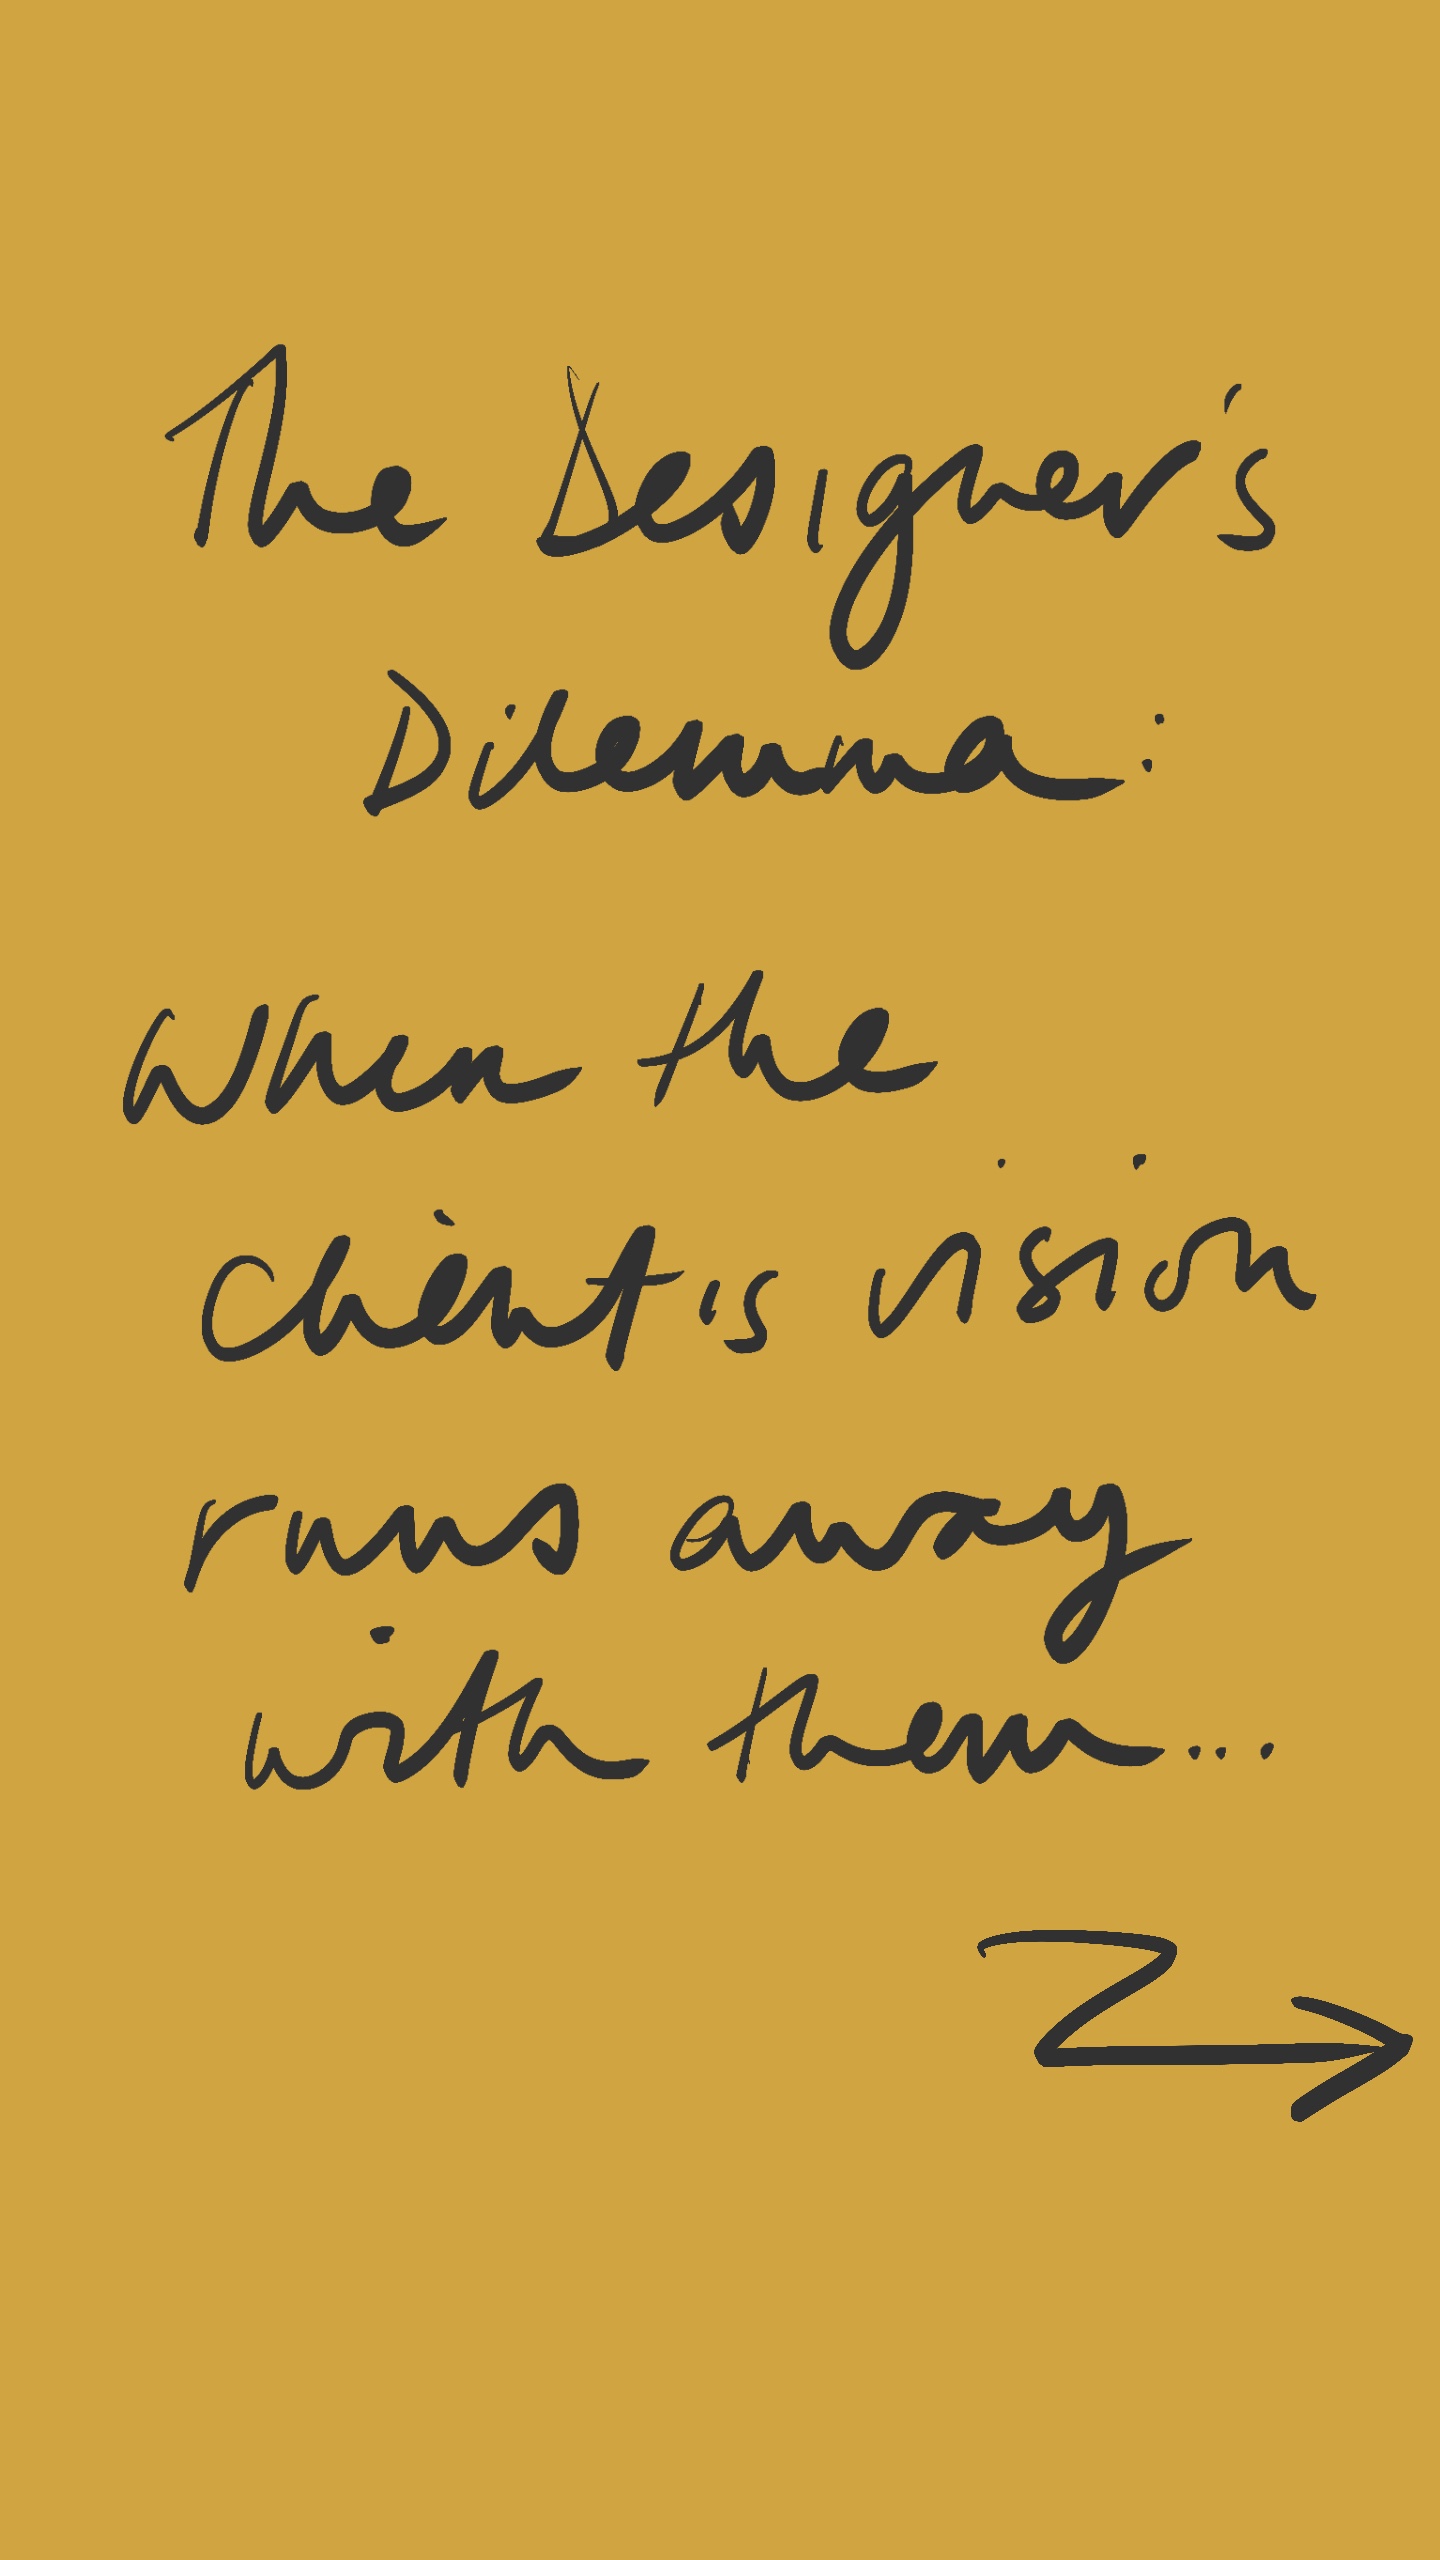 The Designer's
Dilemma:
When the
client's vision
runs away
with them...